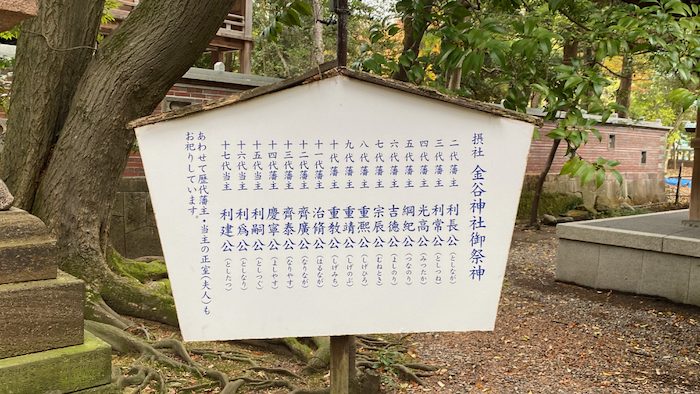 摂社 金谷神社御祭神
二代藩主 利長公（としなが）
三代藩主 利常公（としつね）
四代藩主 光高公（みつたか）
五代藩主 綱紀公（つなのり）
六代藩主 吉德公（よしのり）
七代藩主 宗辰公（むねとき）
八代藩主 重凞公（しげひろ）
九代藩主 重靖公（しげのぶ）
十代藩主 重教公（しげみち）
十一代藩主 治脩公（はるなが）
十二代藩主 齊廣公（なりなが）
十三代藩主 齊泰公（なりやす）
十四代藩主 慶寧公（よしやす）
十五代当主 利嗣公（としつぐ）
十六代当主 利爲公（としなり）
十七代当主 利建公（としたつ）
あわせて歴代藩主・当主の正室（夫人）も
お祀りしています。